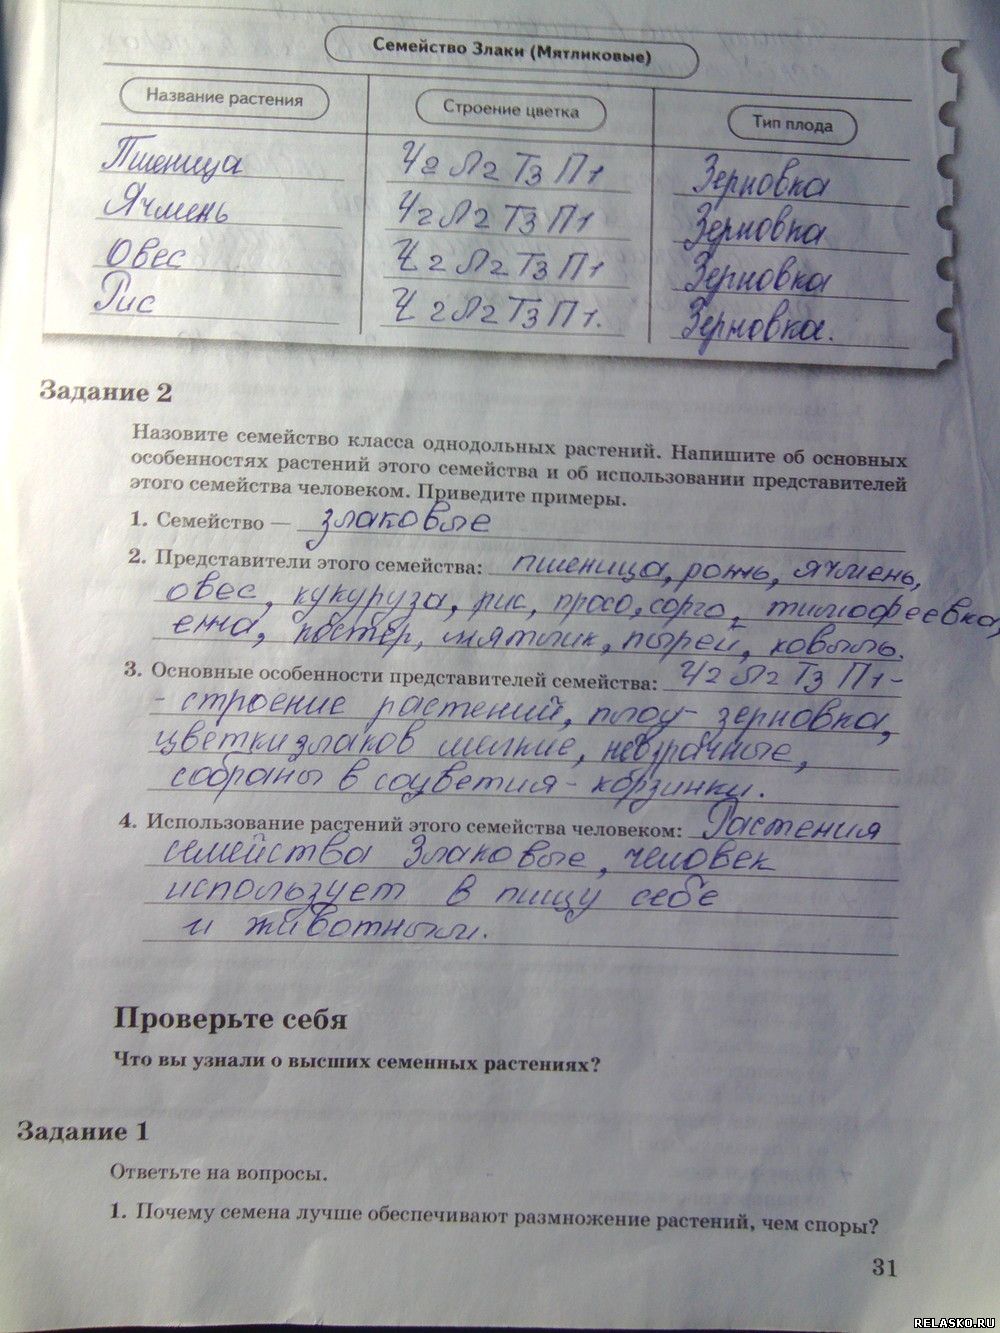 Семейство Злаки (Мятликовые)
Название растения Строение цветка Тип плода
Пшеница Ч2 Л2 Т3 П1 Зерновка
Ячмень Ч2 Л2 Т3 П1 Зерновка
Овес Ч2 Л2 Т3 П1 Зерновка
Рис Ч2 Л2 Т3 П1. Зерновка.
Задание 2
Назовите семейство класса однодольных растений. Напишите об основных
особенностях растений этого семейства и об использовании представителей
этого семейства человеком. Приведите примеры.
1. Семейство — злаковые
2. Представители этого семейства: пшеница, рожь, ячмень,
овес, кукуруза, рис, просо, сорго, тимофеевка,
ежа, костер, мятлик, пырей, ковыль.
3. Основные особенности представителей семейства: Ч2 Л2 Т3 П1 -
- строение растений, плод - зерновка,
цветки злаков мелкие, невзрачные,
собраны в соцветия - корзинки.
4. Использование растений этого семейства человеком: Растения
семейства Злаковые, человек
использует в пищу себе
и животным.
Проверьте себя
Что вы узнали о высших семенных растениях?
Задание 1
Ответьте на вопросы.
1. Почему семена лучше обеспечивают размножение растений, чем споры?
31
RELASKO.RU